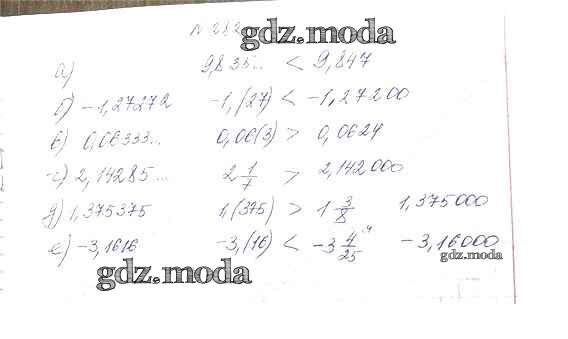 N 282
gdz.moda
а) 9,835.. < 9,847
б) -1,27272 -1,(27) < -1,27200
в) 0,06333.. 0,06(3) > 0,0624
г) 2,14285... 2 1/7 > 2,142000
д) 1,375375 1,(375) > 1 3/8 1,375000
е) -3,1616 -3,(16) < -3 4/25 -3,16000
gdz.moda
gdz.moda